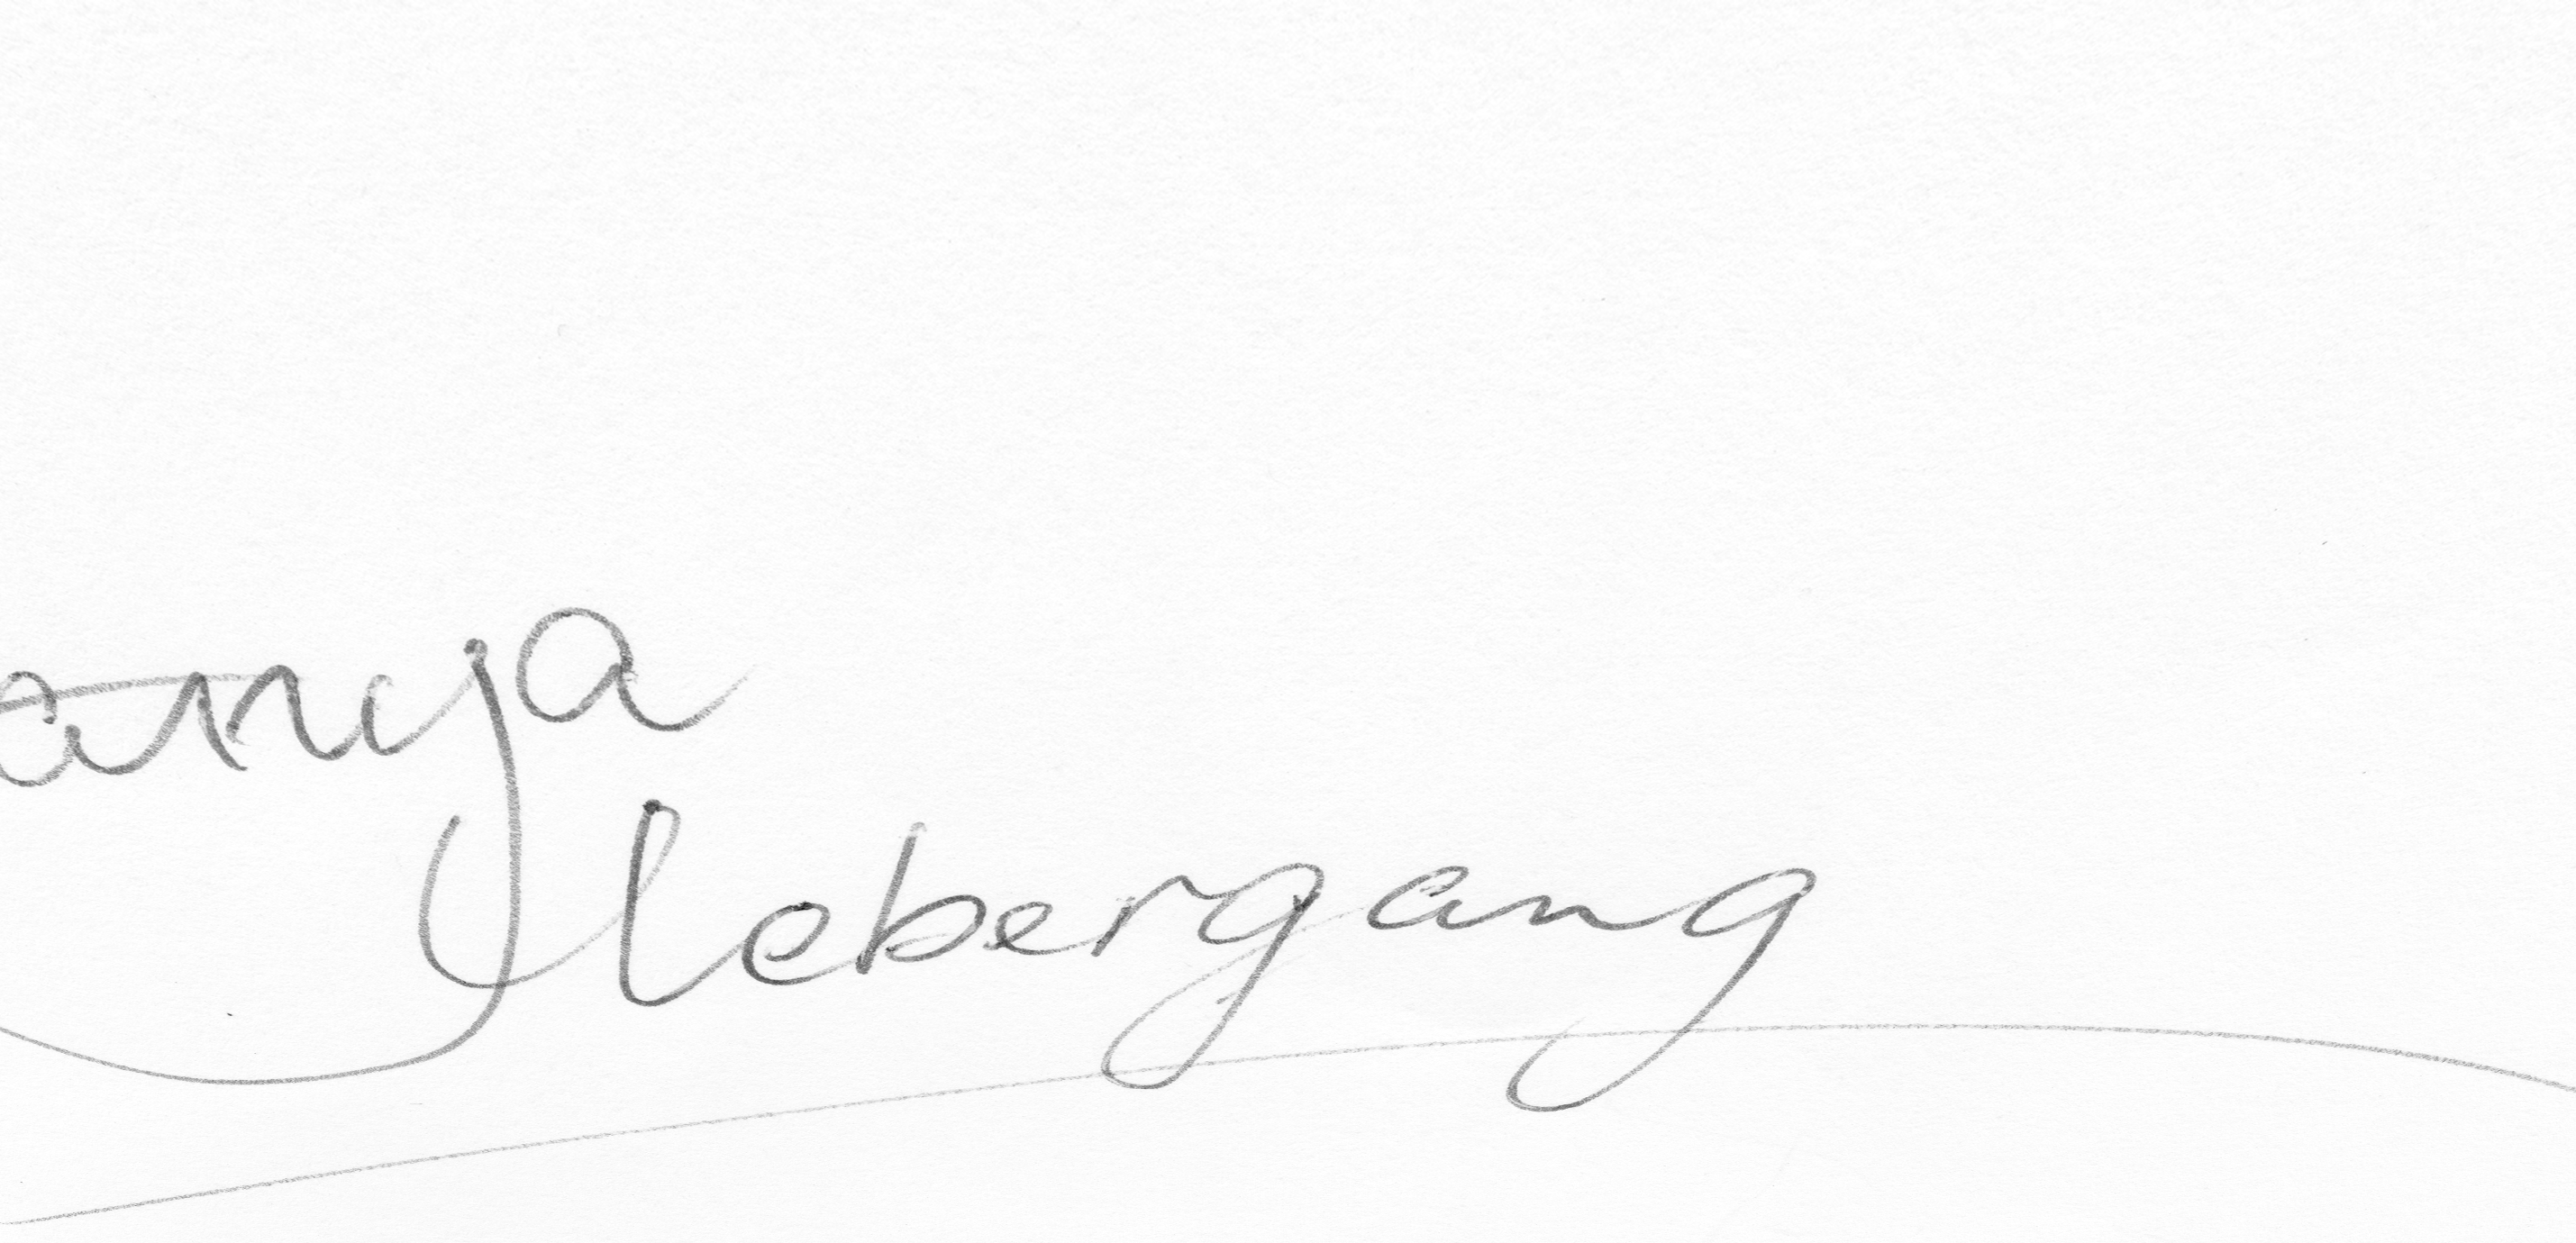 anya
Uebergang